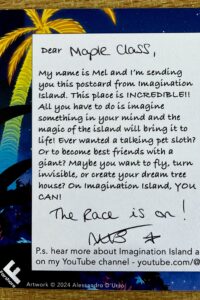 Dear Maple Class,
My name is Mel and I'm sending
you this postcard from Imagination
Island. This place is INCREDIBLE!!
All you have to do is imagine
something in your mind and the
magic of the island will bring it to
life! Ever wanted a talking pet sloth?
Or to become best friends with a
giant? Maybe you want to fly, turn
invisible, or create your dream tree
house? On Imagination Island, YOU
CAN!
The Race is on!
P.s. hear more about Imagination Island a
on my YouTube channel - youtube.com/@
Artwork © 2024 Alessandro D'Urso